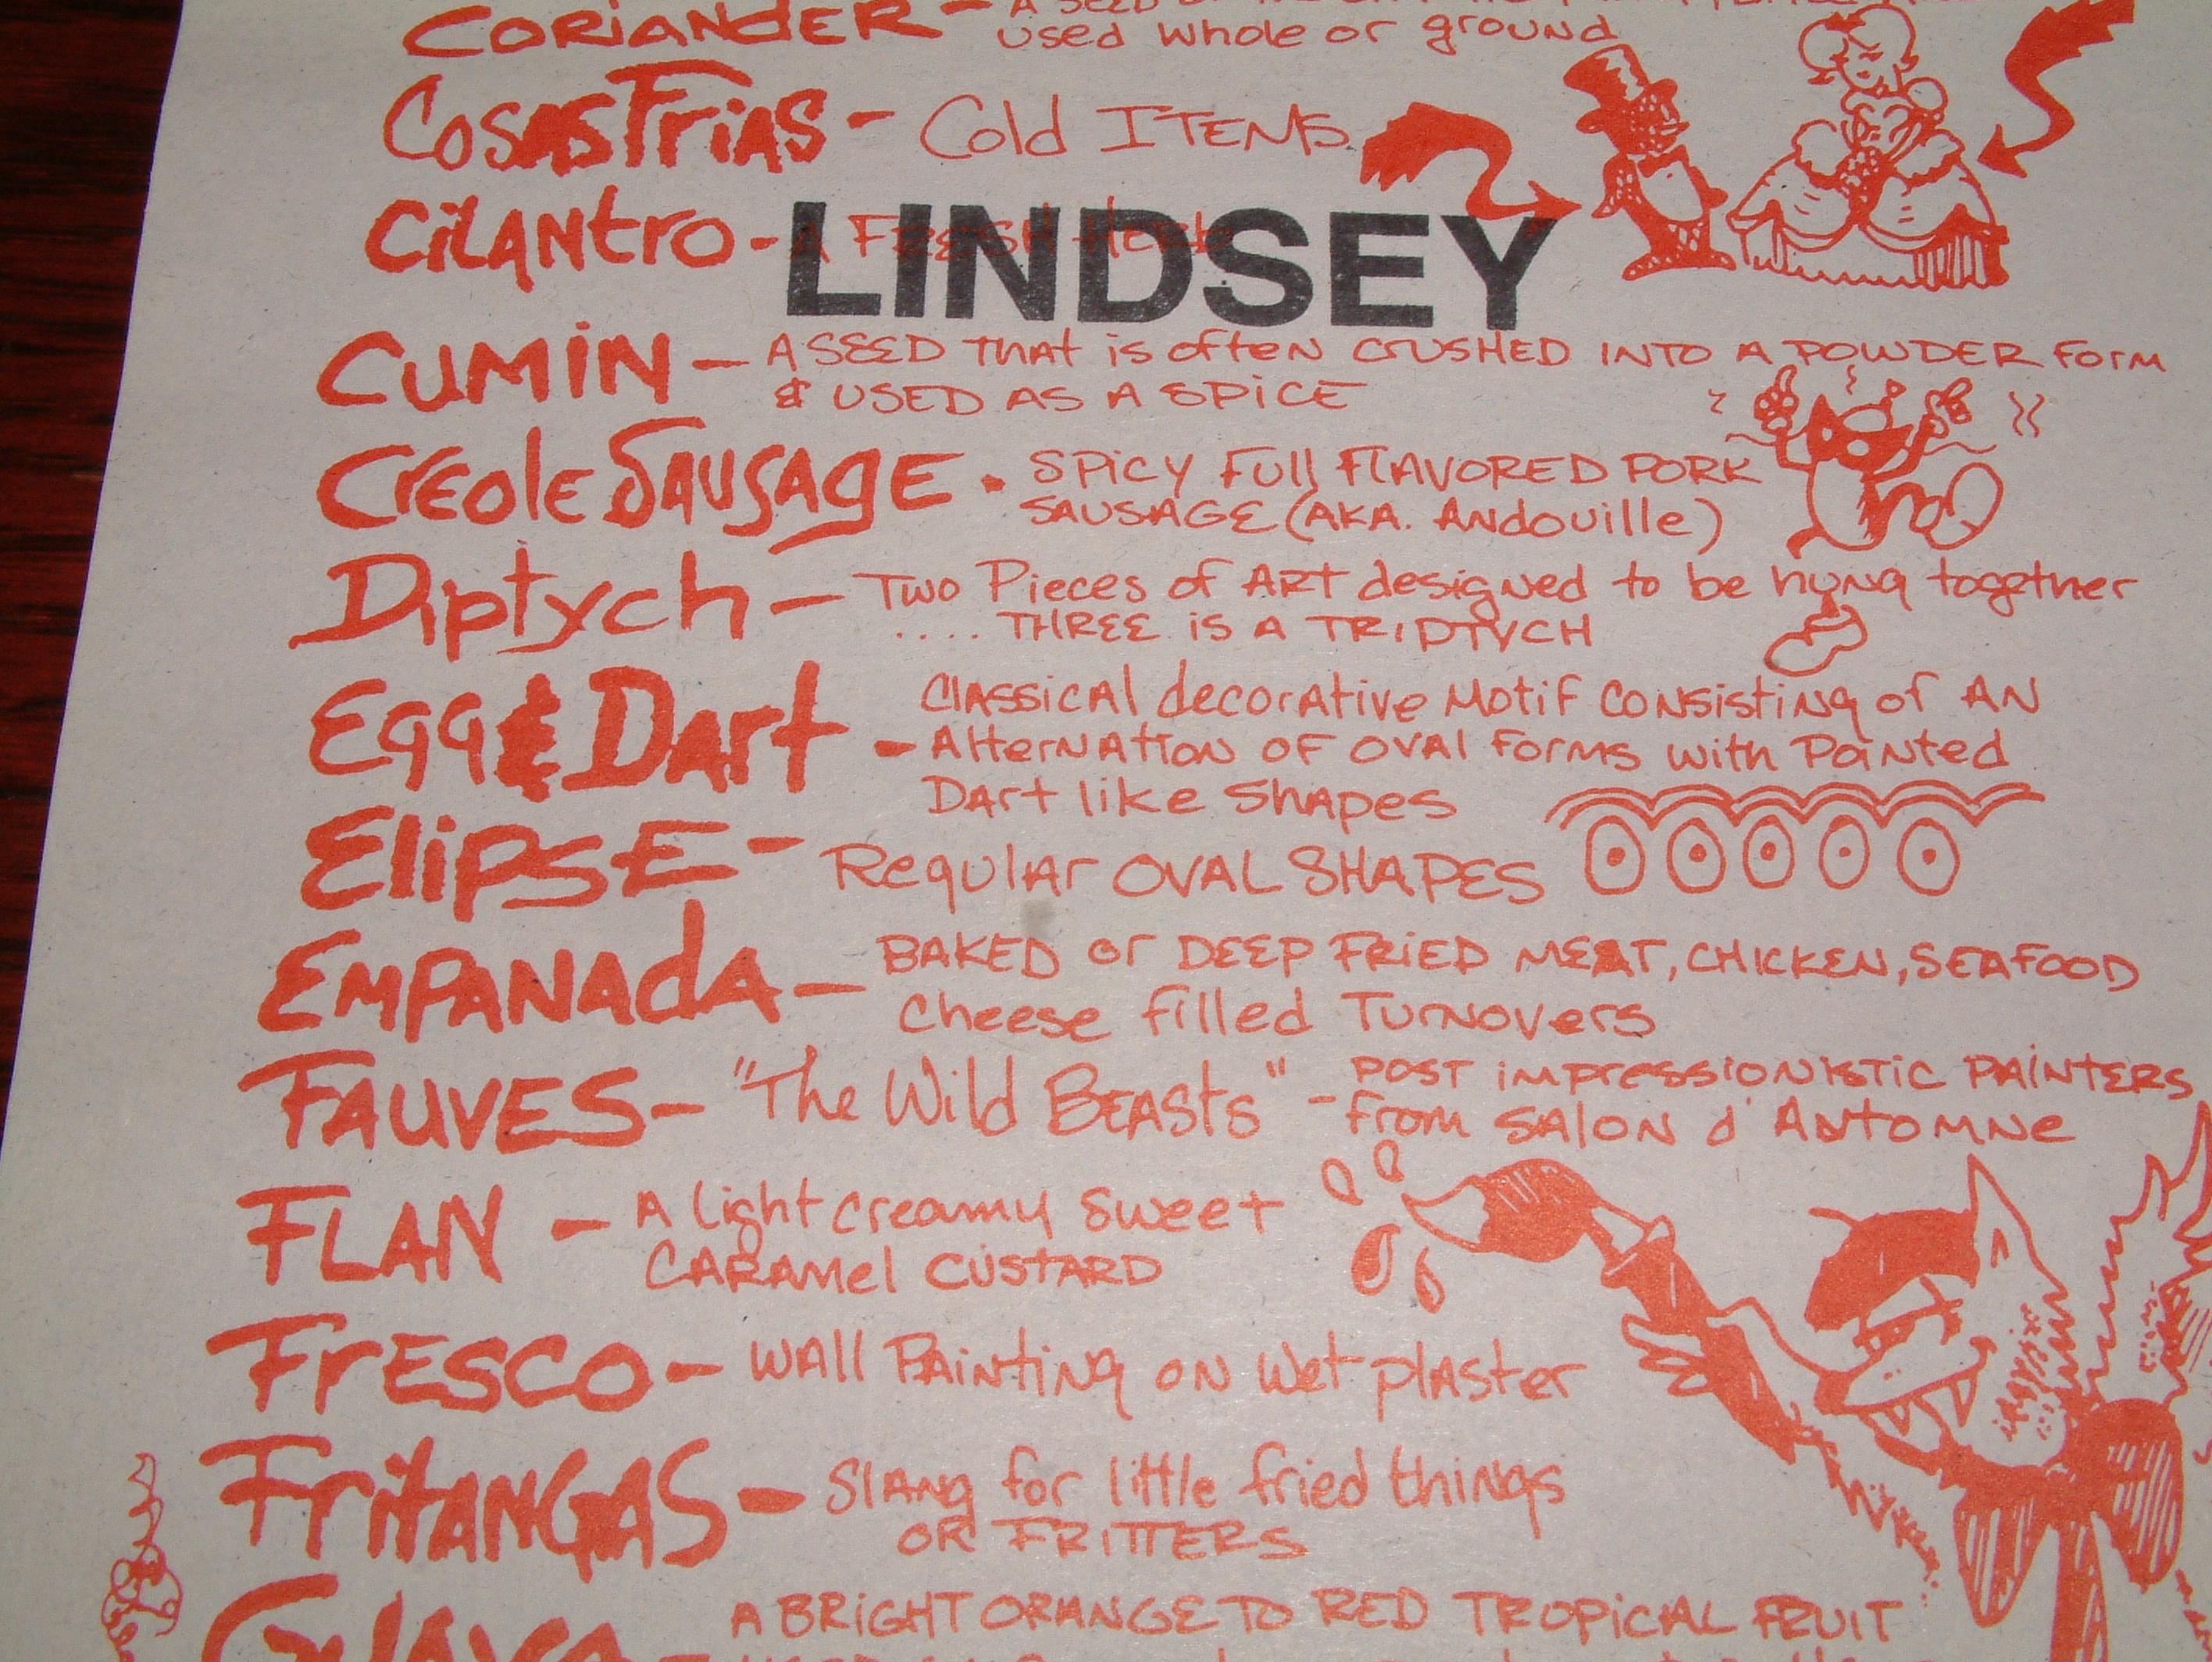 CORIANDER -
used whole or ground
Cosas Frias - Cold ITEMS
Cilantro - A FRESH Herb
LINDSEY
CUMIN - A SEED that is often CRUSHED INTO A POWDER Form
& USED AS A SPICE
Creole Sausage - SPICY Full FLAVORED PORK
SAUSAGE (AKA. Andouille)
Diptych - Two Pieces of ART designed to be hung together
.... THREE IS A TRIPTYCH
Egg & Dart - Classical decorative Motif Consisting of AN
Alternation OF OVAL Forms with Pointed
Dart like Shapes
Elipse - Regular OVAL SHAPES
Empanada - BAKED or DEEP FRIED MEAT, CHICKEN, SEAFOOD
Cheese filled Turnovers
FAUVES - "The Wild BEASTS" - POST IMPRESSIONISTIC PAINTERS
From SALON d' Antomne
FLAN - A light creamy sweet
CARAMel CUSTARD
FRESCO - WALL PAinting ON Wet plaster
Fritangas - Slang for little fried things
OR FRITTERS
Guava - A BRIGHT ORANGE TO RED TROPICAL FRUIT